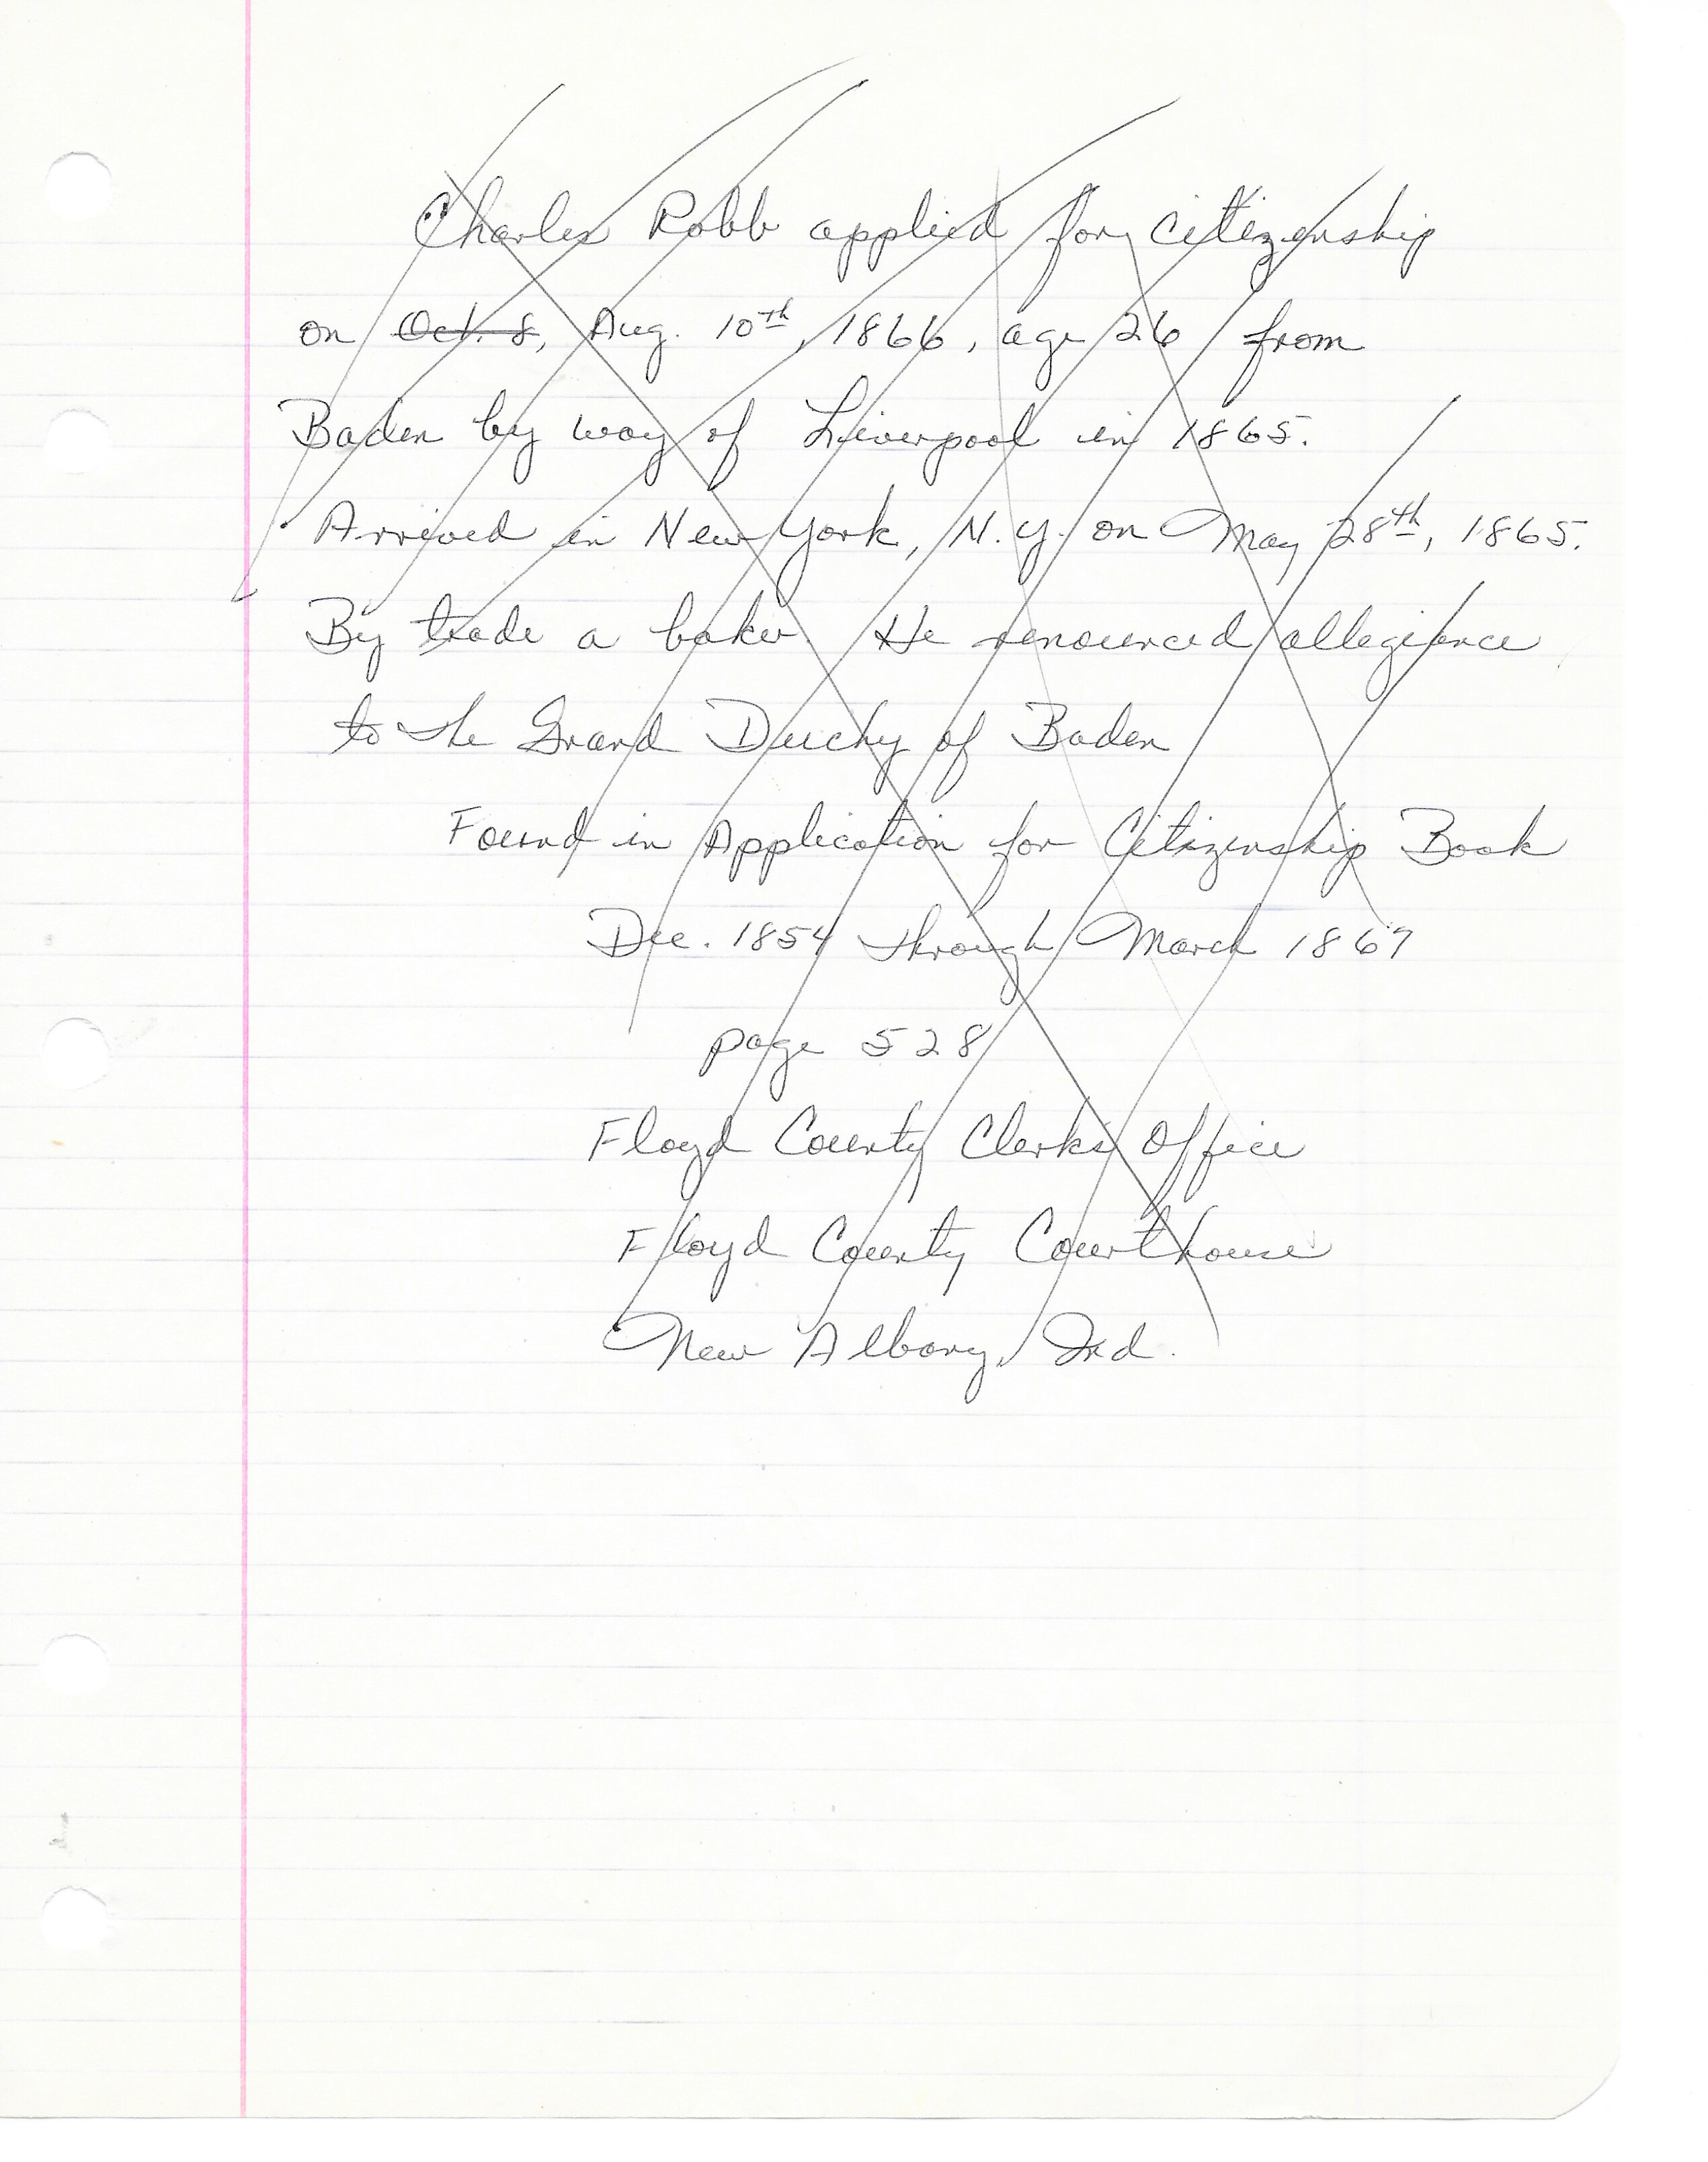 Charles Robb applied for citizenship
on Oct. 8, Aug. 10th, 1866, age 26 from
Baden by way of Liverpool in 1865.
Arrived in New York, N.Y. on May 28th, 1865.
By trade a baker. He renounced allegience
to the Grand Duchy of Baden
Found in Application for Citizenship Book
Dec. 1854 through March 1867
page 528
Floyd County Clerks Office
Floyd County Courthouse
New Albany, Ind.